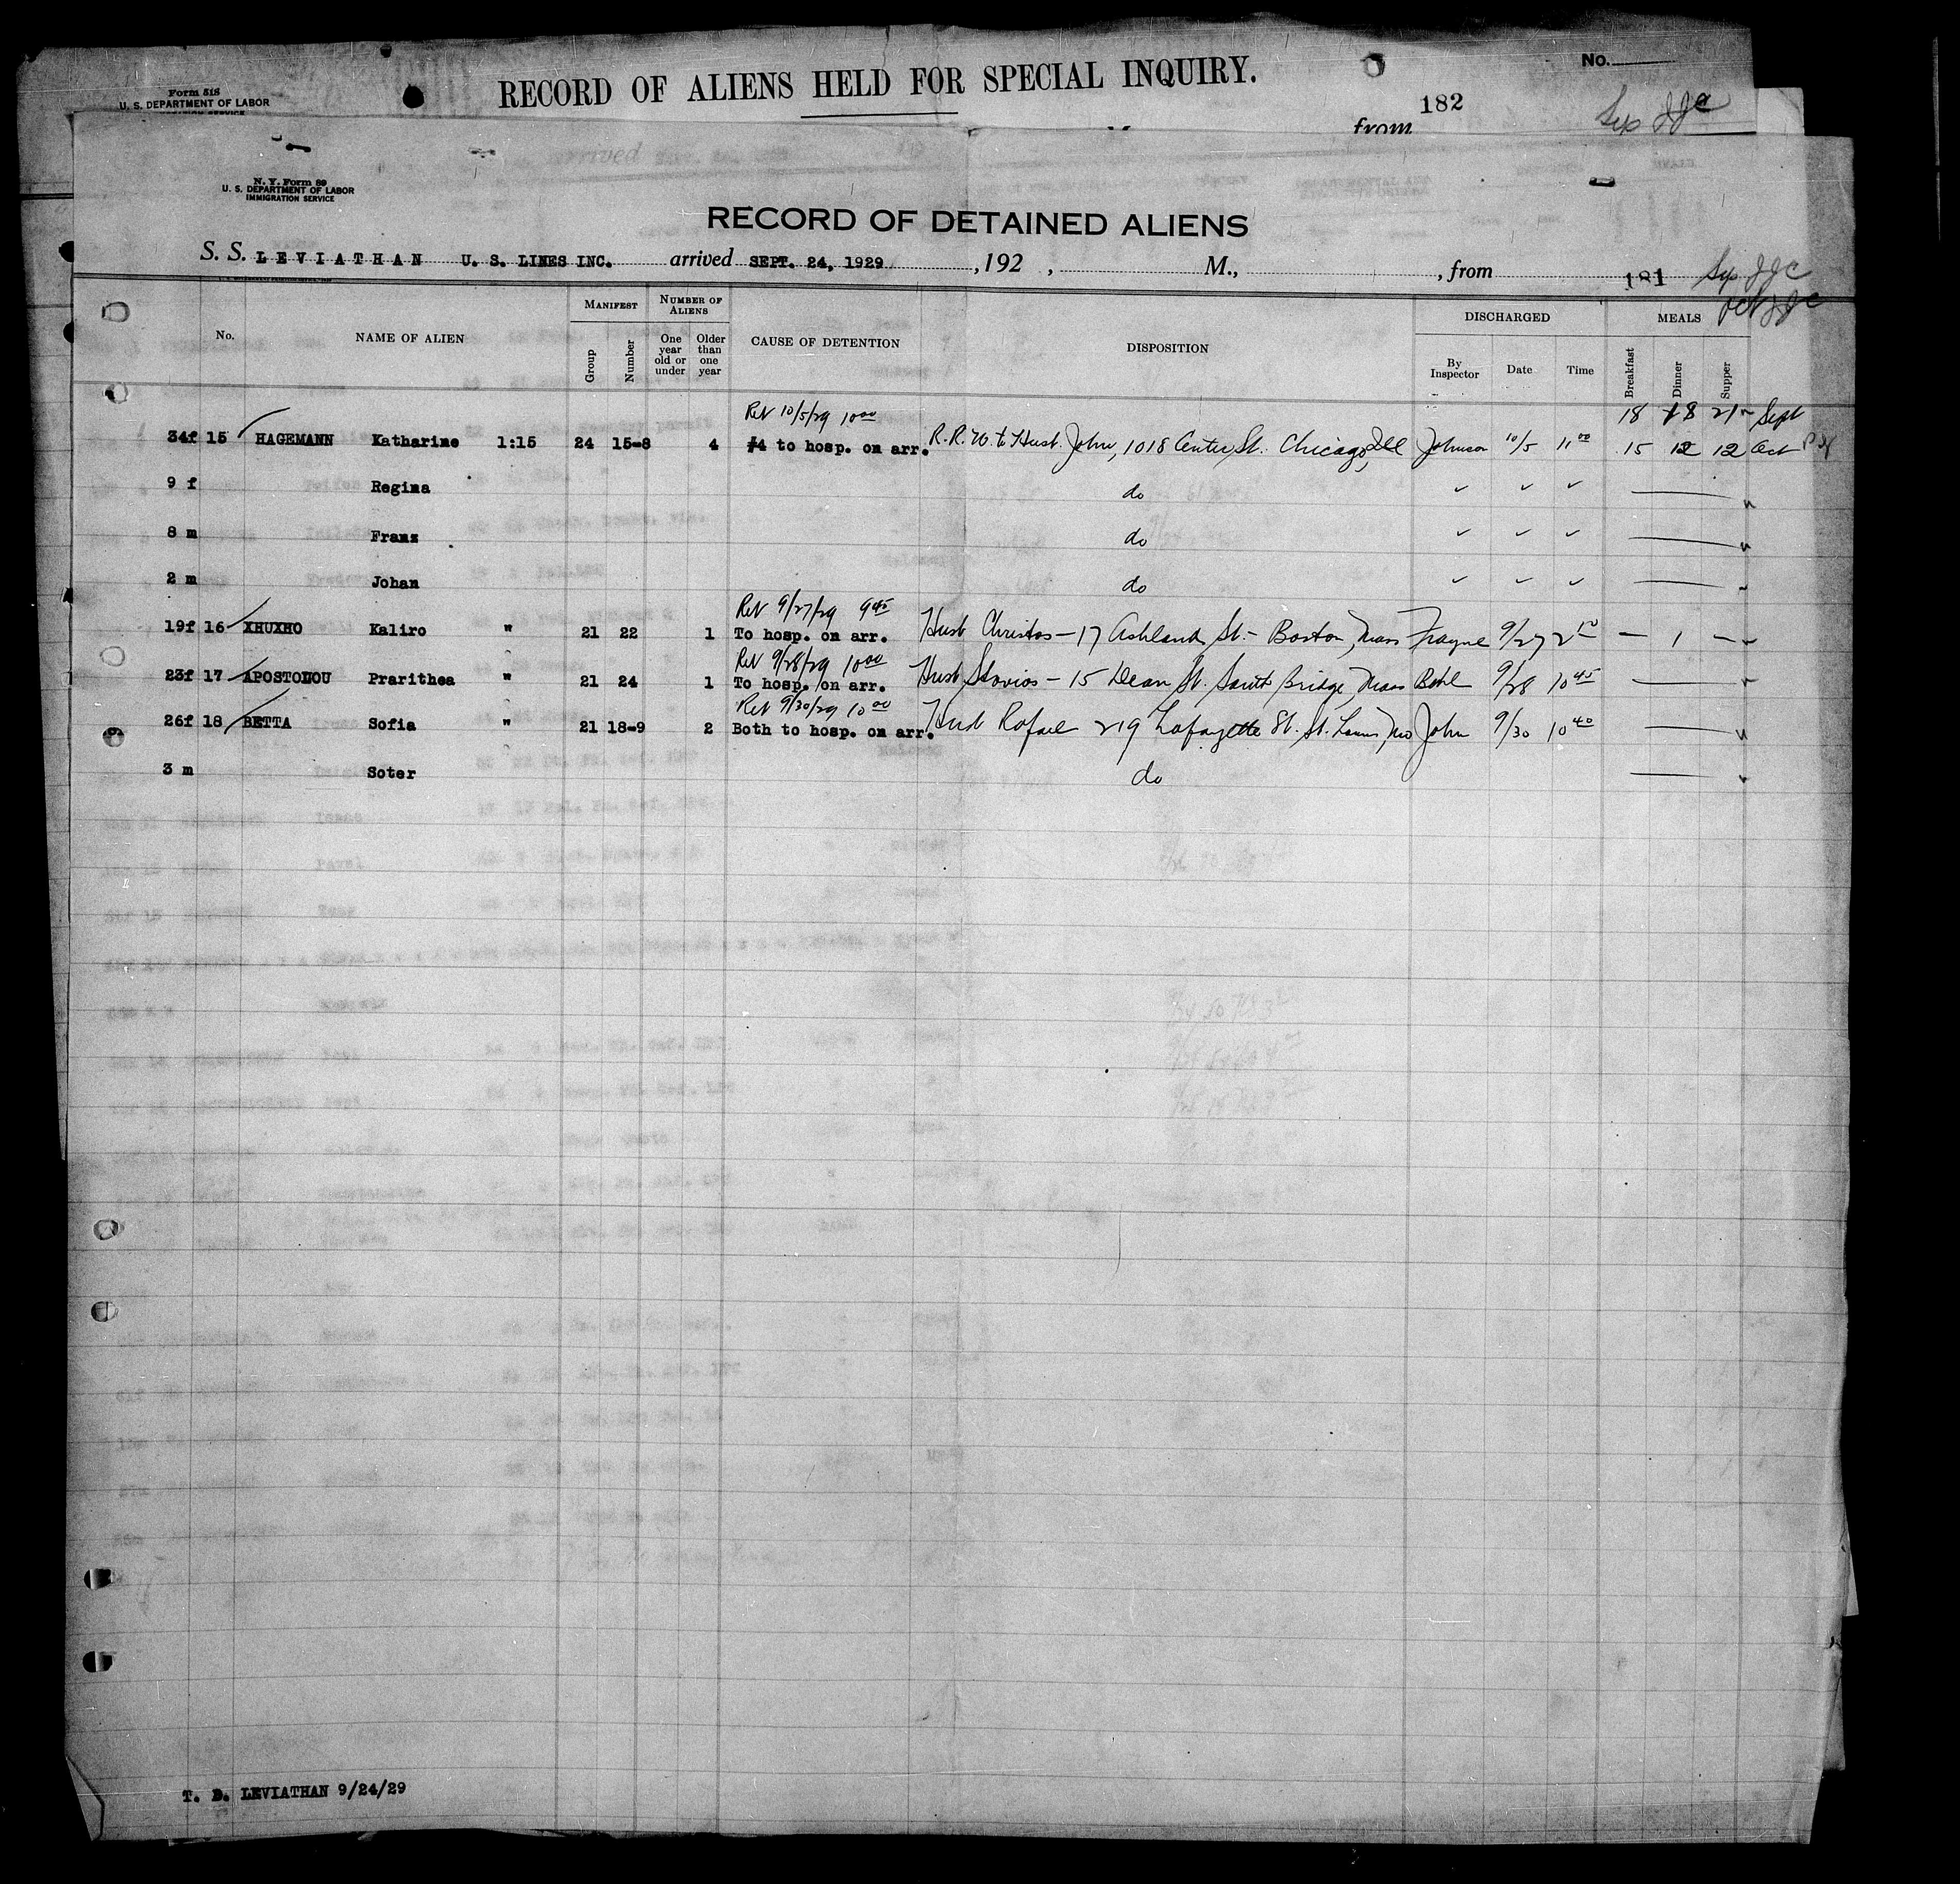 Form 518
U. S. DEPARTMENT OF LABOR
RECORD OF ALIENS HELD FOR SPECIAL INQUIRY.
No.
182
from
N. Y. Form 89
U. S. DEPARTMENT OF LABOR
IMMIGRATION SERVICE
RECORD OF DETAINED ALIENS
S. S. LEVIATHAN U. S. LINES INC. arrived SEPT. 24, 1929 , 192 , M., , from 181
No. NAME OF ALIEN MANIFEST Group Number NUMBER OF ALIENS One year old or under Older than one year CAUSE OF DETENTION DISPOSITION DISCHARGED By Inspector Date Time MEALS Breakfast Dinner Supper
Ret 10/5/29 10 00 18 18 21 Sept
34f 15 HAGEMANN Katharine 1:15 24 15-8 4 #4 to hosp. on arr. R.R. to Husb. John, 1018 Center St. Chicago, Ill Johnson 10/5 11 00 15 12 12 Oct
9 f Regina do
8 m Franz do
2 m Johan do
Ret 9/27/29 9 45
19f 16 XHUXHO Kaliro " 21 22 1 To hosp. on arr. Husb Christos - 17 Ashland St. - Boston, Mass Frayne 9/27 2 10 - 1 -
Ret 9/28/29 10 00
23f 17 APOSTOLOU Prarithea " 21 24 1 To hosp. on arr. Husb Stavios - 15 Dean St. South Bridge, Mass 9/28 10 45
Ret 9/30/29 10 00
26f 18 BETTA Sofia " 21 18-9 2 Both to hosp. on arr. Husb Rafael 219 Lafayette St. St. Louis, Mo John 9/30 10 40
3 m Soter do
T. D. LEVIATHAN 9/24/29